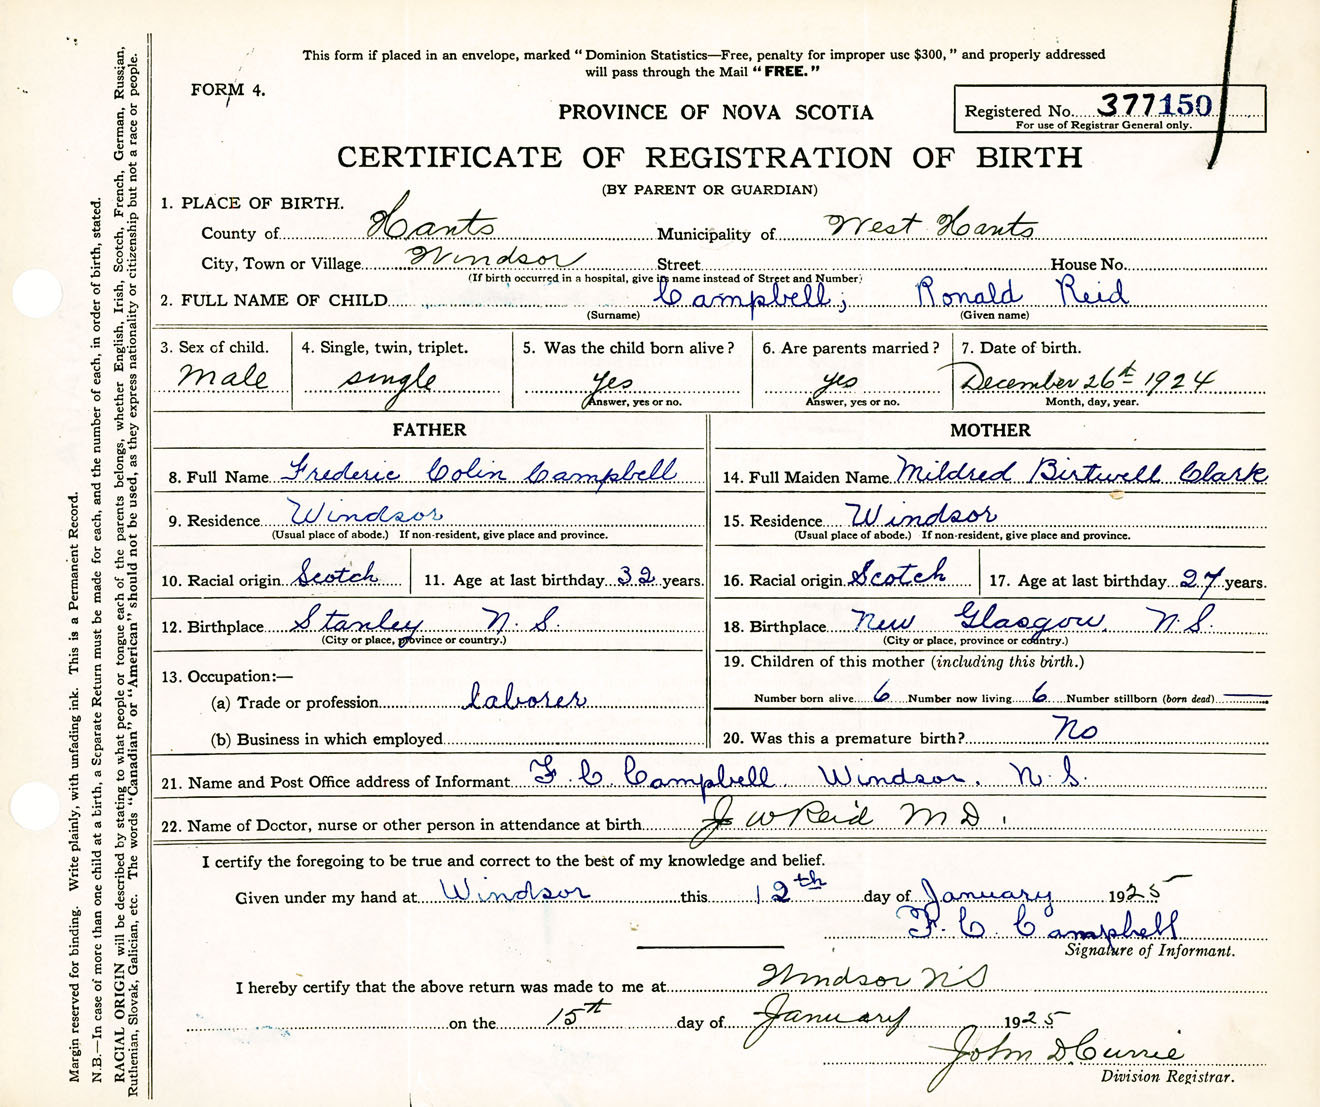 This form if placed in an envelope, marked "Dominion Statistics—Free, penalty for improper use $300," and properly addressed
will pass through the Mail "FREE."
FORM 4.
PROVINCE OF NOVA SCOTIA
Registered No. 377150
For use of Registrar General only.
CERTIFICATE OF REGISTRATION OF BIRTH
(BY PARENT OR GUARDIAN)
1. PLACE OF BIRTH.
County of Hants Municipality of West Hants
City, Town or Village Windsor Street House No.
(If birth occurred in a hospital, give its name instead of Street and Number)
2. FULL NAME OF CHILD Campbell, Ronald Reid
(Surname) (Given name)
3. Sex of child. 4. Single, twin, triplet. 5. Was the child born alive? 6. Are parents married? 7. Date of birth.
Male single yes yes December 26th 1924
Answer, yes or no. Answer, yes or no. Month, day, year.
FATHER
8. Full Name Frederic Colin Campbell
9. Residence Windsor
(Usual place of abode.) If non-resident, give place and province.
10. Racial origin Scotch 11. Age at last birthday 32 years.
12. Birthplace Stanley N.S.
(City or place, province or country.)
13. Occupation:—
(a) Trade or profession laborer
(b) Business in which employed
MOTHER
14. Full Maiden Name Mildred Birtwell Clark
15. Residence Windsor
(Usual place of abode.) If non-resident, give place and province.
16. Racial origin Scotch 17. Age at last birthday 27 years.
18. Birthplace New Glasgow, N.S.
(City or place, province or country.)
19. Children of this mother (including this birth.)
Number born alive 6 Number now living 6 Number stillborn (born dead)
20. Was this a premature birth? No
21. Name and Post Office address of Informant F. C. Campbell Windsor, N.S.
22. Name of Doctor, nurse or other person in attendance at birth J W Reid M D.
I certify the foregoing to be true and correct to the best of my knowledge and belief.
Given under my hand at Windsor this 12th day of January 1925
F. C. Campbell
Signature of Informant.
I hereby certify that the above return was made to me at Windsor N S
on the 15th day of January 1925
John D Currie
Division Registrar.
Margin reserved for binding. Write plainly, with unfading ink. This is a Permanent Record.
N.B.—In case of more than one child at a birth, a Separate Return must be made for each, and the number of each, in order of birth, stated.
RACIAL ORIGIN will be described by stating to what people or tongue each of the parents belongs, whether English, Irish, Scotch, French, German, Russian,
Ruthenian, Slovak, Galician, etc. The words "Canadian" or "American" should not be used, as they express nationality or citizenship but not a race or people.